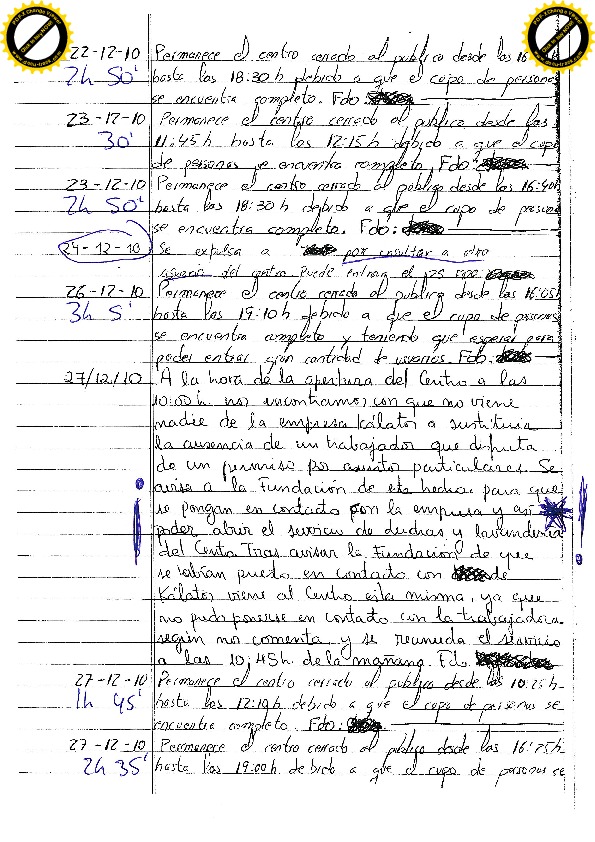 22-12-10 Permanece el centro cerrado al público desde las 16
2h 50' hasta las 18:30 h debido a que el cupo de personas
se encuentra completo. Fdo:
23-12-10 Permanece el centro cerrado al público desde las
30' 11:45h hasta las 12:15h debido a que el cupo
de personas se encuentra completo, Fdo:
23-12-10 Permanece el centro cerrado al público desde las 16:40h
2h 50' hasta las 18:30 h debido a que el cupo de personas
se encuentra completo. Fdo:
24-12-10 Se expulsa a por insultar a otro
usuario del centro Puede entrar el
26-12-10 Permanece el centro cerrado al público desde las 16:05h
3h 5' hasta las 19:10h debido a que el cupo de personas
se encuentra completo y teniendo que esperar para
poder entrar gran cantidad de usuarios. Fdo:
27/12/10 A la hora de la apertura del Centro a las
10:00 h nos encontramos con que no viene
nadie de la empresa Kálator a sustituir
la ausencia de un trabajador que disfruta
de un permiso por asuntos particulares. Se
avisa a la Fundación de este hecho para que
se pongan en contacto con la empresa y así
poder abrir el servicio de duchas y lavandería
del Centro Tras avisar la Fundación de que
se habían puesto en contacto con de
Kálator viene al Centro esta misma, ya que
no pudo ponerse en contacto con la trabajadora
según nos comenta y se reanuda el servicio
a las 10:45h de la mañana. Fdo
27-12-10 Permanece el centro cerrado al público desde las 10:25h
1h 45' hasta las 12:10h debido a que el cupo de personas se
encuentra completo. Fdo:
27-12-10 Permanece el centro cerrado al público desde las 16:25h
2h 35' hasta las 19:00h debido a que el cupo de personas se